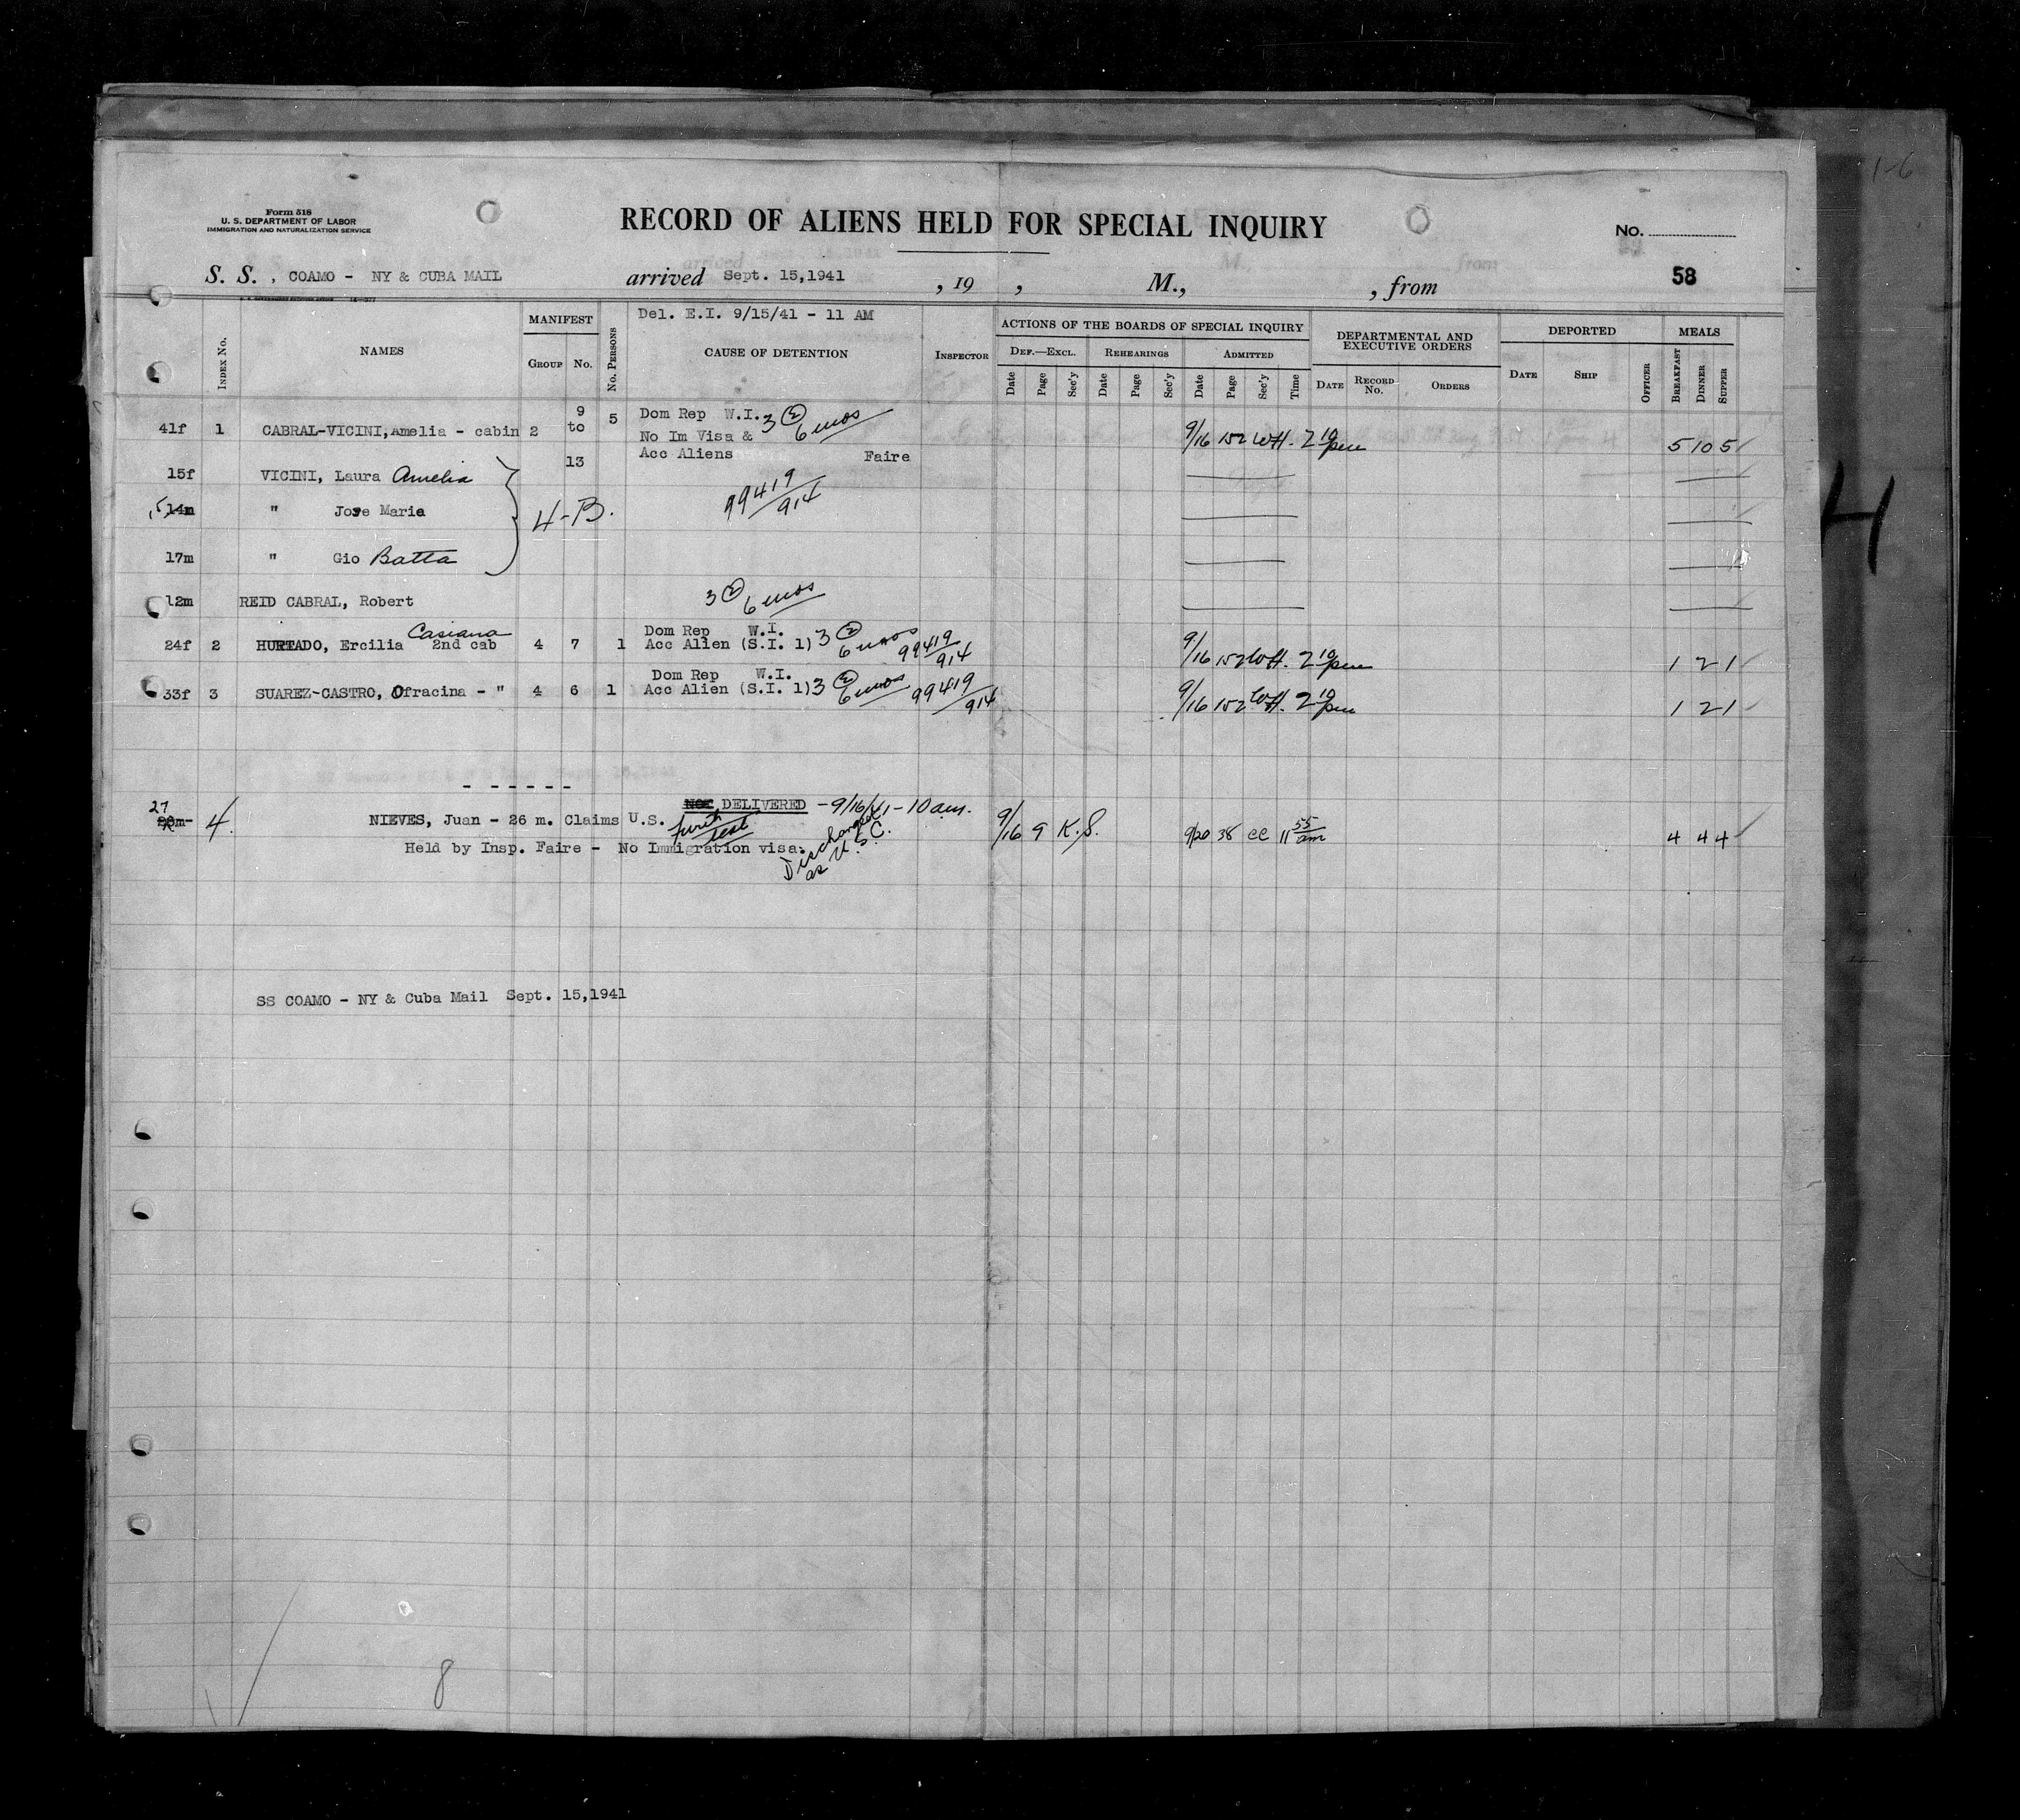 Form 518
U. S. DEPARTMENT OF LABOR
IMMIGRATION AND NATURALIZATION SERVICE
RECORD OF ALIENS HELD FOR SPECIAL INQUIRY
No.
58
S. S. , COAMO - NY & CUBA MAIL arrived Sept. 15,1941 , 19 , M., , from
Del. E.I. 9/15/41 - 11 AM
INDEX No. NAMES MANIFEST GROUP No. No. PERSONS CAUSE OF DETENTION INSPECTOR
ACTIONS OF THE BOARDS OF SPECIAL INQUIRY
DEF.—EXCL. REHEARINGS ADMITTED
Date Page Sec'y Date Page Sec'y Date Page Sec'y Time
DEPARTMENTAL AND EXECUTIVE ORDERS
DATE RECORD No. ORDERS
DEPORTED
DATE SHIP OFFICER
MEALS
BREAKFAST DINNER SUPPER
41f 1 CABRAL-VICINI, Amelia - cabin 2 9 to 13 5 Dom Rep W.I. 3 (2) 6 mos 9/16 152 WH. 2 10 pm 5 10 5
No Im Visa &
Acc Aliens Faire
15f VICINI, Laura Amelia
99419/914
15 14m " Jose Maria 4-B.
17m " Gio Batta
12m REID CABRAL, Robert 3 (2) 6 mos
24f 2 HURTADO, Ercilia Casiana 2nd cab 4 7 1 Dom Rep W.I.
Acc Alien (S.I. 1) 3 (2) 6 mos 99419/914 9/16 152 WH. 2 10 pm 1 2 1
33f 3 SUAREZ-CASTRO, Ofracina - " 4 6 1 Dom Rep W.I.
Acc Alien (S.I. 1) 3 (2) 6 mos 99419/914 9/16 152 WH. 2 10 pm 1 2 1
- - - - - -
NOT DELIVERED - 9/16/41 - 10 am.
27 26m 4. NIEVES, Juan - 26 m. Claims U.S. 9/16 9 K.S. 9/20 38 CC 11 55 am 4 4 4
Held by Insp. Faire - No Immigration visa.
Discharged as U.S.C.
SS COAMO - NY & Cuba Mail Sept. 15,1941
8
1-6
4